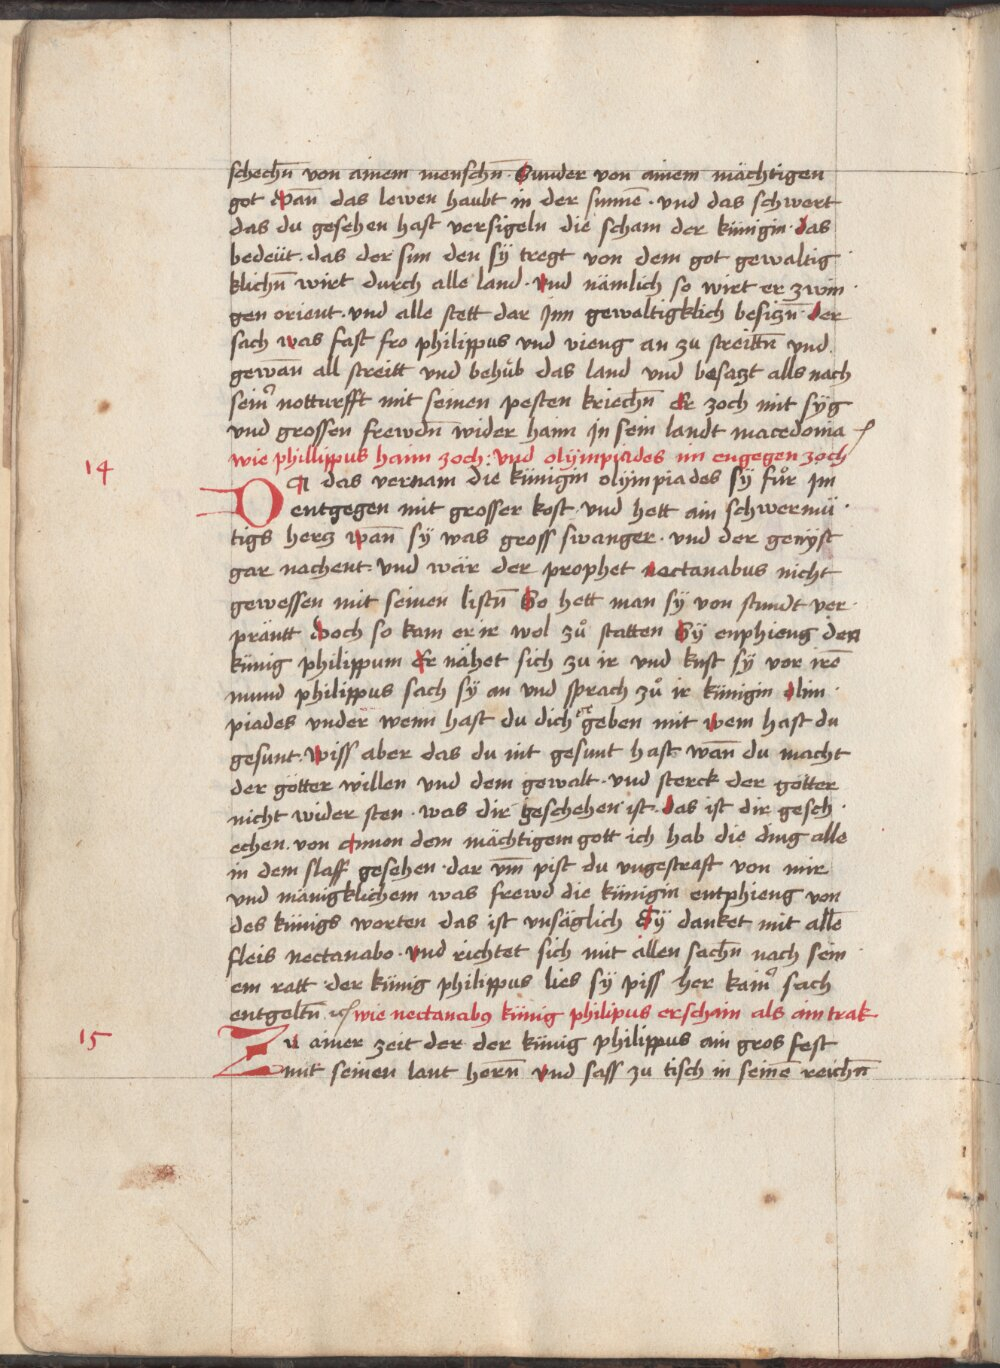 schechn̄ von ainem menschn̄ Sunder von ainem mächtigen
got Wan̄ das lewen haubt in der sunnē · vnd das schwert
das du gesehen hast versigeln die scham der künigin · das
bedeüt · das der sun den sÿ tregt von dem got gewaltig
klichn̄ wirt durch alle land · vnd nämlich so wirt er zwin ·
gen orient · vnd alle stett dar Inn gewaltigklich besiczn̄ · der
sach was fast fro philippus vnd vieng an zu streittn̄ vnd
gewan̄ all streitt vnd behüb das land vnd besaczt alls nach
seinꝰ notturfft mit seinen pesten kriechn̄ Er zoch mit sÿg
vnd grossen frewdn̄ wider haim In sein landt macedonia
wie phillippus haim zoch : vnd olÿmpiades im engegen zoch
14
DA das vernam die künigin olÿmpiades sÿ fůr Im
entgegen mit grosser kost · vnd hett ain schwermü ·
tigs hercz wan̄ sÿ was gross swanger · vnd der genÿst
gar nachent · vnd wär der prophet nectanabus nicht
gewessen mit seinen listn̄ So hett man sÿ von stundt ver ·
präntt Doch so kam er ir wol zů statten Sÿ enphieng den
künig philippum Er nähet sich zu ir vnd kust sÿ vor irē
mund philippus sach sÿ an vnd sprach zů ir künigin olim ·
piades vnder wenn hast du dich geben mit wem hast du
gesunt · wiss aber das du nit gesunt hast wan̄ du macht
der götter willen vnd dem gewalt · vnd sterck der götter
nicht wider sten · was dir geschehen ist · das ist dir gesch ·
echen · von amon dem mächtigem gott ich hab die ding alle
in dem slaff gesehen · dar vm̄ pist du vngestraft von mir
vnd mänigklichem was frewd die künigin entphieng von
des künigs worten das ist vnsäglich Sÿ danket mit allē
fleis nectanabo · vnd richtet sich mit allen sachn̄ nach sein
em ratt der künig philippus lies sÿ piss her kainꝰ sach
entgeltn̄ · wie nectanabꝰ künig philipus erschain als ain trak
15
Zu ainer zeit der der künig philippus ain gros fest
mit seinen lant hern̄n vnd sass zu tisch in seinē reichn̄